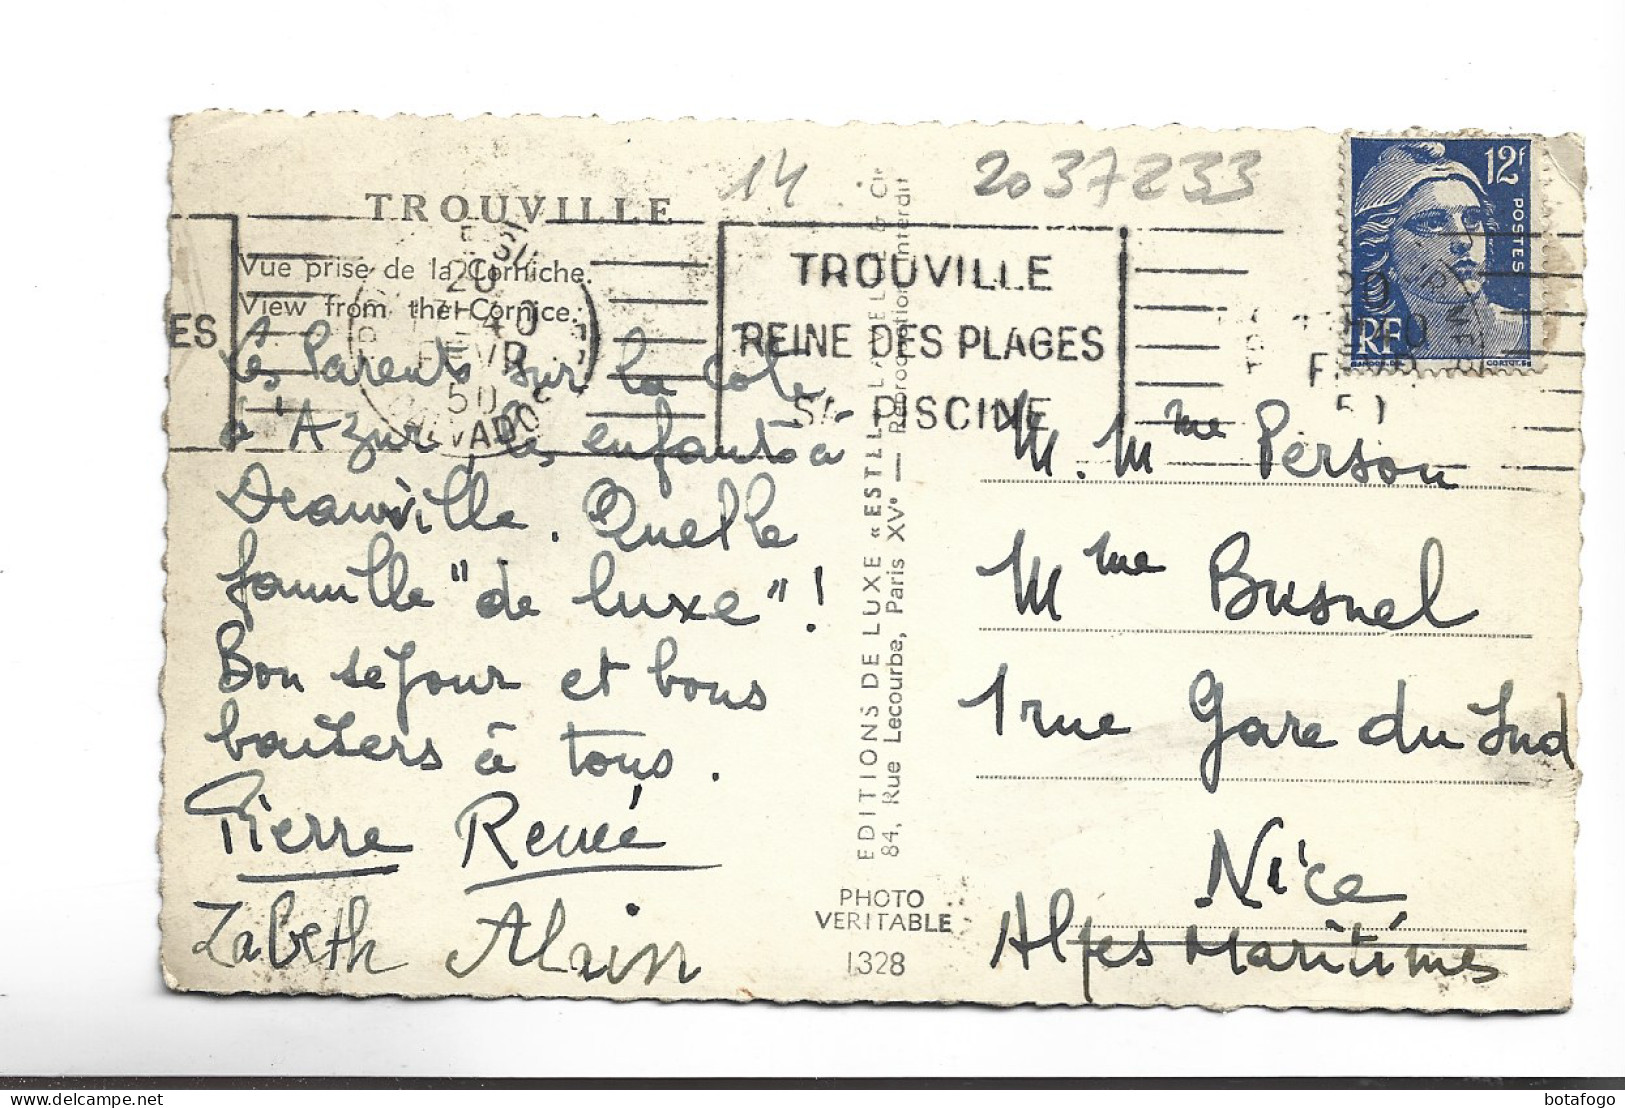 TROUVILLE
Vue prise de la Corniche.
View from the Cornice.
14
2037233
12f
POSTES
RF
ES
20
FEVR
50
TROUVILLE
REINE DES PLAGES
SA PISCINE
Les Parents sur la Côte
d'Azur, les enfants à
Deauville. Quelle
famille "de luxe"!
Bon séjour et bons
baisers à tous.
Pierre Renée
Zabeth Alain
EDITIONS DE LUXE «ESTEL»
84, Rue Lecourbe, Paris XVe — Reproduction interdite
PHOTO
VERITABLE
1328
M. Mme Person
Mme Busnel
1 rue Gare du Sud
Nice
Alpes Maritimes
botafogo